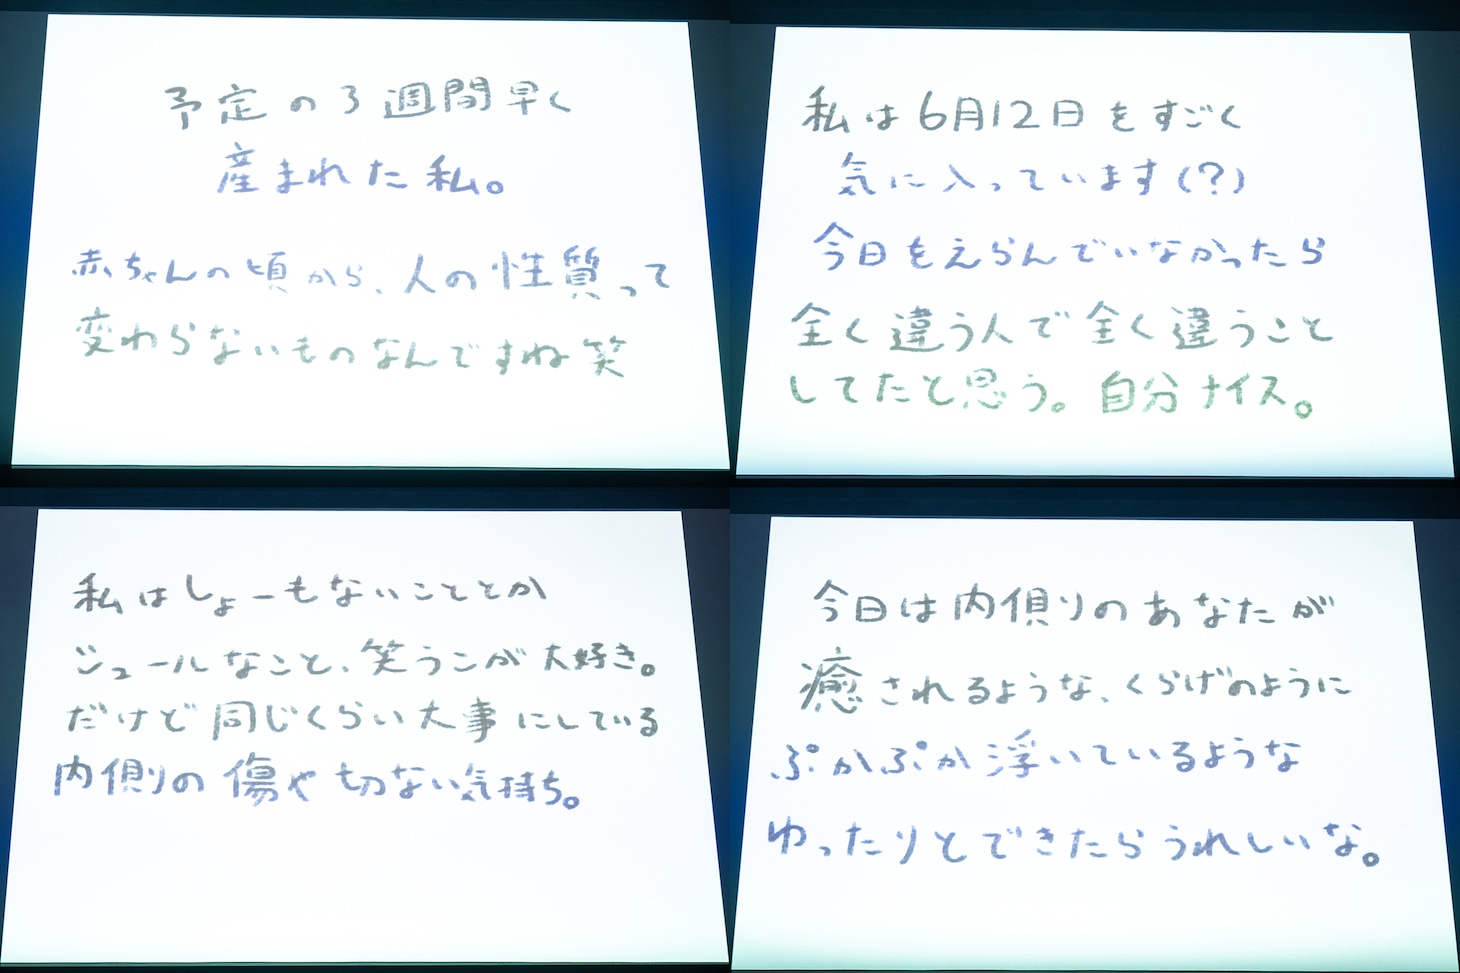 予定の3週間早く
産まれた私。
赤ちゃんの頃から、人の性質って
変わらないものなんですね笑
私は6月12日をすごく
気に入っています(?)
今日をえらんでいなかったら
全く違う人で全く違うこと
してたと思う。自分ナイス。
私はしょーもないこととか
シュールなこと、笑うこが大好き。
だけど同じくらい大事にしている
内側の傷や切ない気持ち。
今日は内側りのあなたが
癒されるような、くらげのように
ぷかぷか浮いているような
ゆったりとできたらうれしいな。